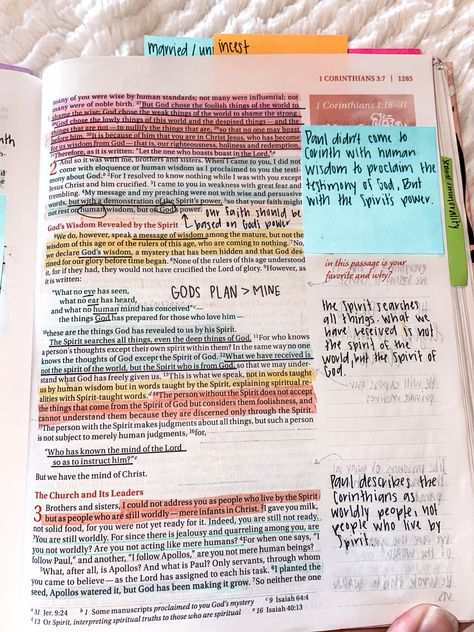 married / un
incest
1 CORINTHIANS 3:7 | 1285
many of you were wise by human standards; not many were influential; not
many were of noble birth. 27But God chose the foolish things of the world to
shame the wise; God chose the weak things of the world to shame the strong.
28God chose the lowly things of this world and the despised things—and the
things that are not—to nullify the things that are, 29so that no one may boast
before him. 30It is because of him that you are in Christ Jesus, who has become
for us wisdom from God—that is, our righteousness, holiness and redemption.
31Therefore, as it is written: "Let the one who boasts boast in the Lord."
2 And so it was with me, brothers and sisters. When I came to you, I did not
come with eloquence or human wisdom as I proclaimed to you the testi-
mony about God. 2For I resolved to know nothing while I was with you except
Jesus Christ and him crucified. 3I came to you in weakness with great fear and
trembling. 4My message and my preaching were not with wise and persuasive
words, but with a demonstration of the Spirit's power, 5so that your faith might
not rest on human wisdom, but on God's power.
our faith should be
based on God's power
God's Wisdom Revealed by the Spirit
6We do, however, speak a message of wisdom among the mature, but not the
wisdom of this age or of the rulers of this age, who are coming to nothing. 7No,
we declare God's wisdom, a mystery that has been hidden and that God des-
tined for our glory before time began. 8None of the rulers of this age understood
it, for if they had, they would not have crucified the Lord of glory. 9However, as
it is written:
"What no eye has seen,
what no ear has heard,
and what no human mind has conceived"
the things God has prepared for those who love him—
GODS PLAN > MINE
10these are the things God has revealed to us by his Spirit.
The Spirit searches all things, even the deep things of God. 11For who knows
a person's thoughts except their own spirit within them? In the same way no one
knows the thoughts of God except the Spirit of God. 12What we have received is
not the spirit of the world, but the Spirit who is from God, so that we may under-
stand what God has freely given us. 13This is what we speak, not in words taught
us by human wisdom but in words taught by the Spirit, explaining spiritual re-
alities with Spirit-taught words. 14The person without the Spirit does not accept
the things that come from the Spirit of God but considers them foolishness, and
cannot understand them because they are discerned only through the Spirit.
15The person with the Spirit makes judgments about all things, but such a person
is not subject to merely human judgments, 16for,
"Who has known the mind of the Lord
so as to instruct him?"
But we have the mind of Christ.
The Church and Its Leaders
3 Brothers and sisters, I could not address you as people who live by the Spirit
but as people who are still worldly—mere infants in Christ. 2I gave you milk,
not solid food, for you were not yet ready for it. Indeed, you are still not ready.
3You are still worldly. For since there is jealousy and quarreling among you, are
you not worldly? Are you not acting like mere humans? 4For when one says, "I
follow Paul," and another, "I follow Apollos," are you not mere human beings?
5What, after all, is Apollos? And what is Paul? Only servants, through whom
you came to believe—as the Lord has assigned to each his task. 6I planted the
seed, Apollos watered it, but God has been making it grow. 7So neither the one
a 31 Jer. 9:24 b 1 Some manuscripts proclaimed to you God's mystery c 9 Isaiah 64:4
d 13 Or Spirit, interpreting spiritual truths to those who are spiritual e 16 Isaiah 40:13
1 Corinthians 1:18-31
Paul didn't come to
Corinth with human
wisdom to proclaim the
testimony of God, But
with the Spirit's power.
in this passage is your
favorite and why?
the Spirit searches
all things. what we
have received is not
the spirit of the
world, but the Spirit of
God.
Paul describes the
Corinthians as
worldly people, not
people who live by
Spirit